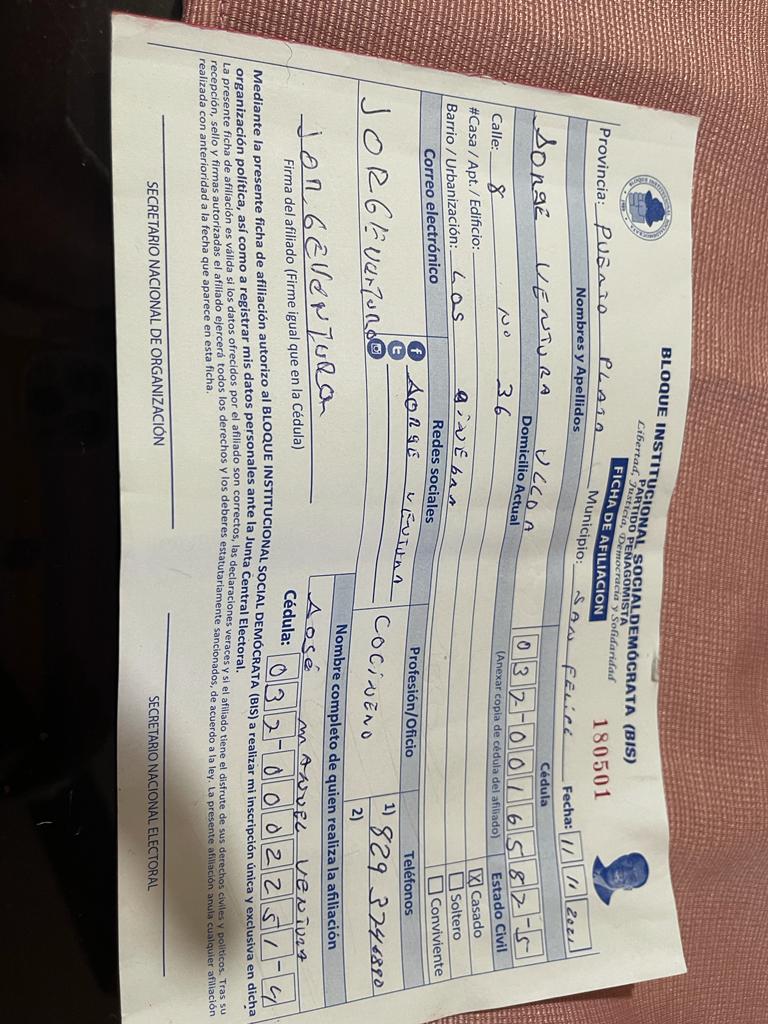 BLOQUE INSTITUCIONAL SOCIALDEMÓCRATA (BIS)
PARTIDO PEÑAGOMISTA
Libertad, Justicia, Democracia y Solidaridad
FICHA DE AFILIACIÓN
180501
Provincia: PUERTO PLATA Municipio: SAN FELIPE Fecha: 11 11 2021
Nombres y Apellidos Cédula
JORGE VENTURA ULLOA 037-0016587-5
Domicilio Actual (Anexar copia de cédula del afiliado) Estado Civil
Calle: 8 Nº 36 X Casado
#Casa / Apt. / Edificio: Soltero
Barrio / Urbanización: LOS GINEBRA Conviviente
Correo electrónico Redes sociales Profesión/Oficio Teléfonos
JORGEVentura JORGE VENTURA COCINERO 1) 829 3746890
2)
Nombre completo de quien realiza la afiliación
JORGEVENTURA JOSÉ MANUEL VENTURA
Firma del afiliado (Firme igual que en la Cédula) Cédula: 037-0002251-4
Mediante la presente ficha de afiliación autorizo al BLOQUE INSTITUCIONAL SOCIAL DEMÓCRATA (BIS) a realizar mi inscripción única y exclusiva en dicha
organización política, así como a registrar mis datos personales ante la Junta Central Electoral.
La presente ficha de afiliación es válida si los datos ofrecidos por el afiliado son correctos, las declaraciones veraces y si el afiliado tiene el disfrute de sus derechos civiles y políticos. Tras su
recepción, sello y firmas autorizadas el afiliado ejercerá todos los derechos y los deberes estatutariamente sancionados, de acuerdo a la ley. La presente afiliación anula cualquier afiliación
realizada con anterioridad a la fecha que aparece en esta ficha.
SECRETARIO NACIONAL DE ORGANIZACIÓN SECRETARIO NACIONAL ELECTORAL